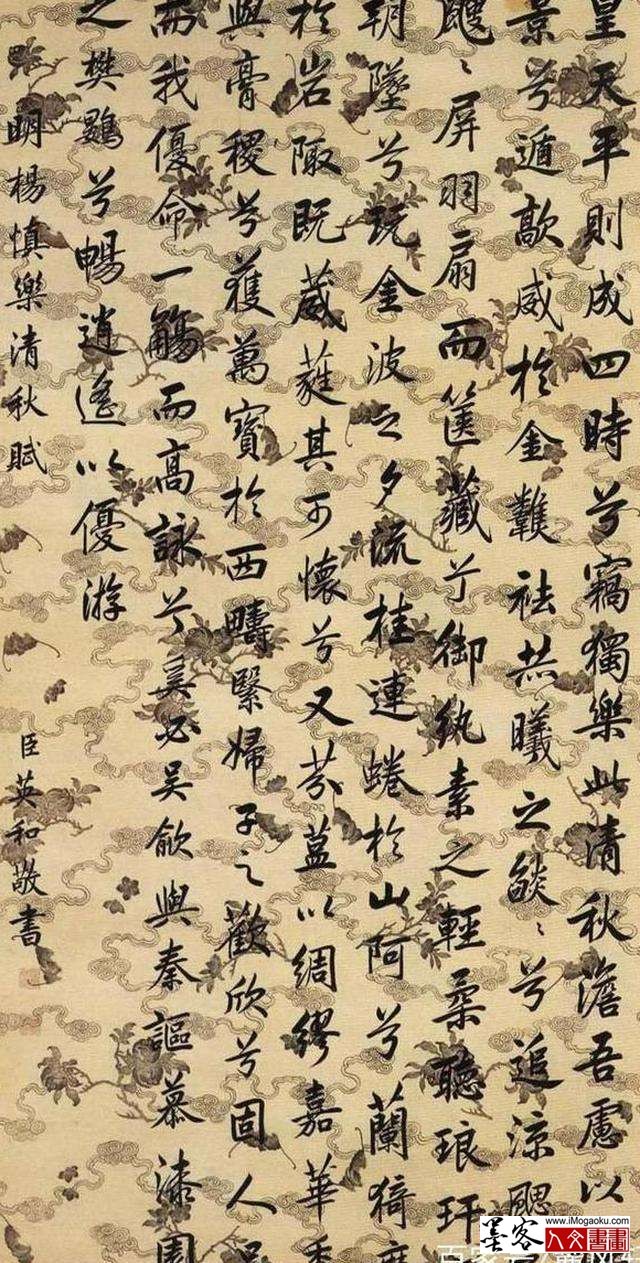 皇天平則成四時兮竊獨樂此清秋澹吾慮以
景兮遁歊威於金難祛炎曦之燄〻兮追涼颸
〻屏羽扇而篋藏兮御紈素之輕柔聽琅玕
朝墜兮玩金波之夕流桂連蜷於山阿兮蘭猗
於岩陬既葳蕤其可懷兮又芬以綢繆嘉華
與膏稷兮獲萬寶於西疇緊婦子之歡欣兮固人
而我優命一觴而高詠兮奚必吳歈與秦謳慕漆園
之樊鷃兮暢逍遙以優游
明楊慎樂清秋賦
臣英和敬書
墨客 www.iMogaoku.com
人文書畫